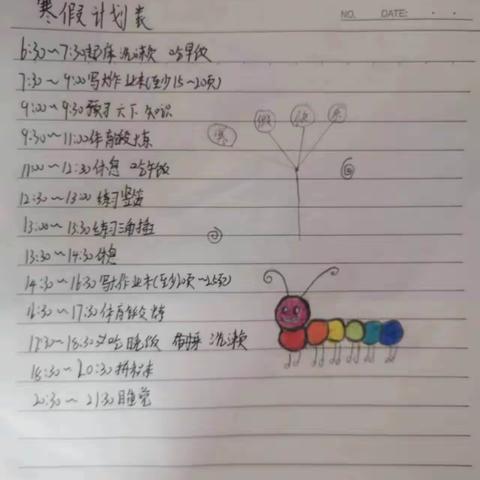 寒假计划表
NO.
DATE:
6:30~7:30起床 洗漱 吃早饭
7:30~9:00写寒作业本(至少15~20页)
9:00~9:30预习六下知识
9:30~11:00体育锻炼
11:00~12:30休息 吃午饭
12:30~13:00练习竖笛
13:00~13:30练习
13:30~14:30休息
14:30~16:30写作业本(至少
16:30~17:30体育锻炼
17:30~18:30吃晚饭 洗漱
18:30~20:30
20:30~21:30睡觉
寒 假 快 乐